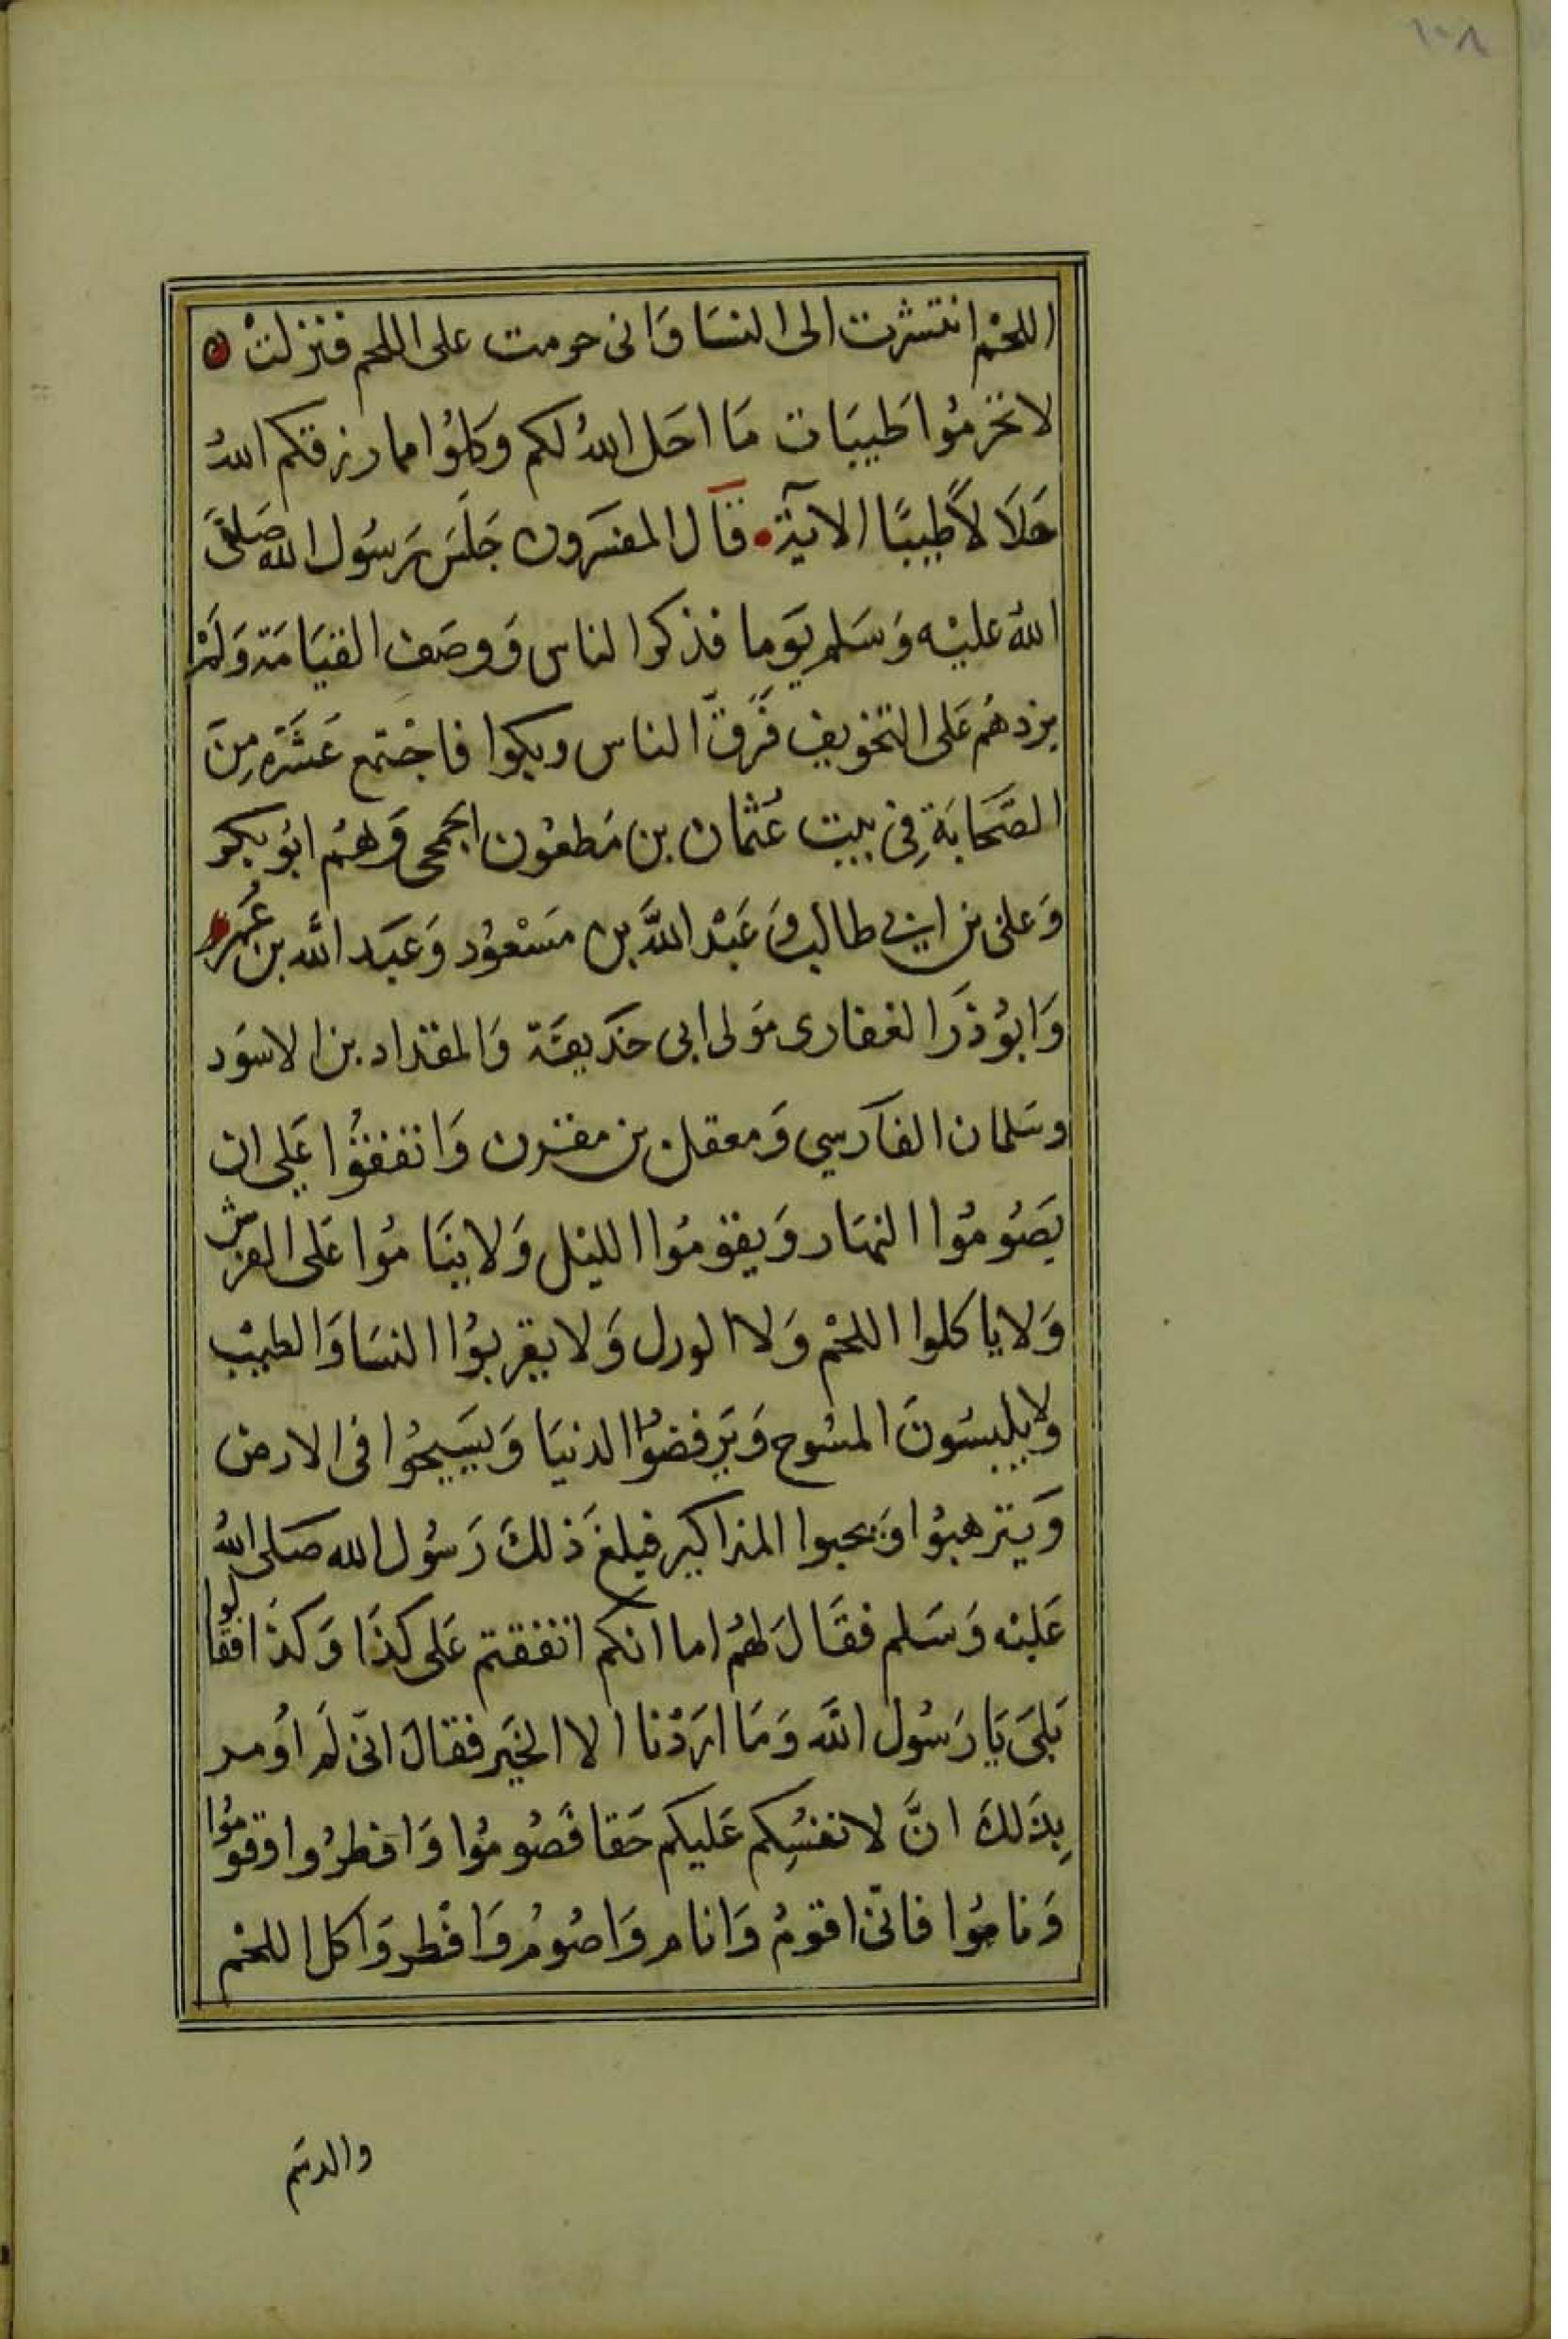 ١٠٨
اللحْم انتشرت الى النسَا وَانى حرمت على اللحم فنزلتْ
لا تحَرمُوا طَيبَات مَا احَل اللهُ لكم وَكلوُا مما رزقكم اللهُ
حَلَا لاً طيبًا الآية قَال المفسرون جَلسَ رَسُول الله صَلى
اللهُ عليْه وَسَلم يَوما فذكر الناس وَوصَف القيَامَة وَلَمْ
يزدهُم عَلى التخويف فَرقّ الناس وبكوا فاجْتمع عَشَرَه مِنَ
الصَحَابَةِ فِى بيت عُثمان بن مَطعُون الجمحى وَهُم ابُو بكر
وَعلى بن ابى طالب وَعَبْد اللَّه بن مَسْعوُد وَعبَد الله بن عُمَر
وَابوُ ذَر الغفارى مَولى ابى حذيفَة وَالمقداد بن الاسوَد
وسَلمان الفارسي وَمعقل بن مقرن وَاتفقوُا عَلى ان
يَصُومُوا النهَار وَيقومُوا الليْل وَلا ينَامُوا عَلى الفرش
وَلا ياكلوا اللحْم وَلا الورل وَلا يقربوُا النسَا وَالطيبْ
ولا يلبسُونَ المسُوح وَيَرفضوُا الدنيَا وَيسَيحُوا فى الارض
وَيترهبوُا وَيحبوا المذاكير فبلغَ ذلكَ رَسُول الله صَلى اللهُ
عَليْه وَسَلم فقَالَ لهُم اما انكم اتفقتم عَلى كذَا وَكذَا فقَالوا
بَلىَ يَا رَسُول اللَّه وَمَا ارَدْنا الا الخيَر فقَالَ انّى لَم اوُمر
بِذَلكَ انَّ لانفسُكم عَليكم حَقا فَصُومُوا وَافطرُوا وقومُوا
وَنامُوا فانّى اقومُ وَانام وَاصُومُ وَافْطِر وَاكل اللحْم
والدسَم